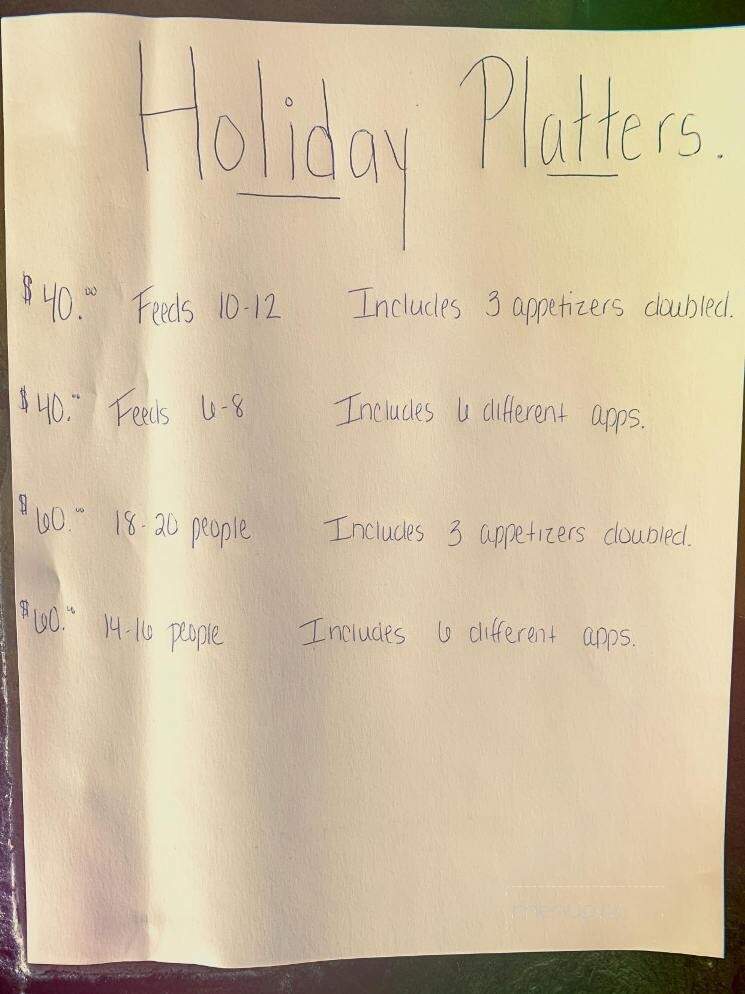 Holiday Platters.
$40.00 Feeds 10-12 Includes 3 appetizers doubled.
$40.00 Feeds 6-8 Includes 6 different apps.
$60.00 18-20 people Includes 3 appetizers doubled.
$60.00 14-16 people Includes 6 different apps.